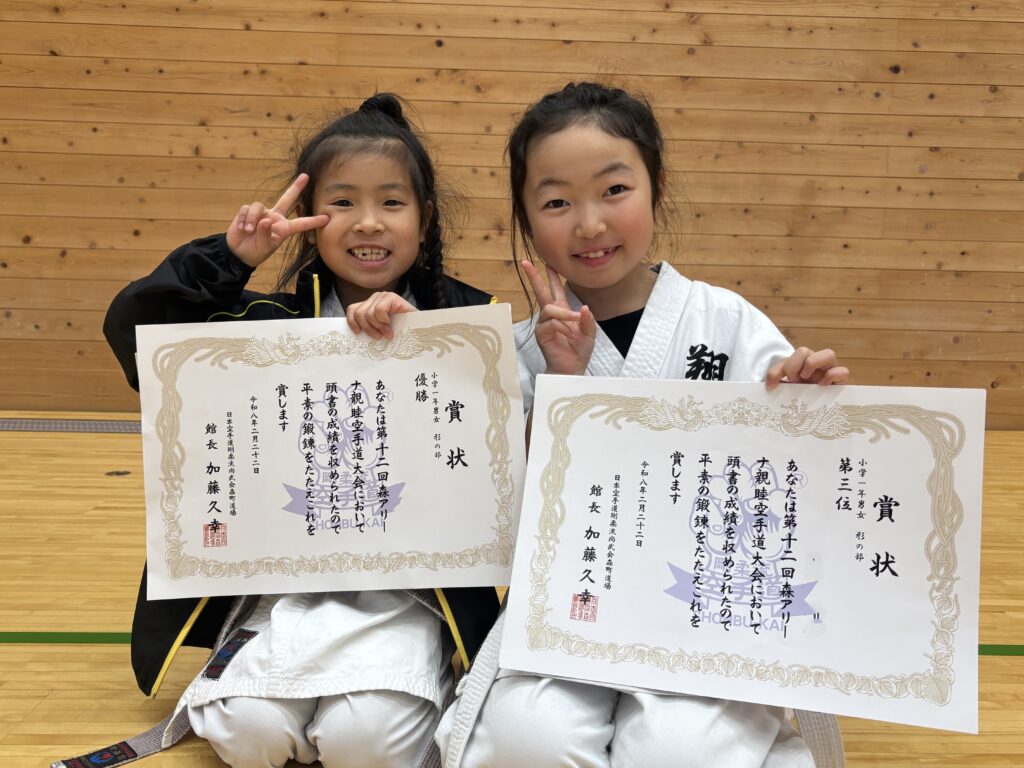 賞状
小学一年男女 形の部
優勝
あなたは第十二回森アリー
ナ親睦空手道大会において
頭書の成績を収められたので
平素の鍛錬をたたえこれを
賞します
令和八年二月二十二日
日本空手道剛柔流尚武会森町道場
館長 加藤久幸
賞状
小学一年男女 形の部
第三位
あなたは第十二回森アリー
ナ親睦空手道大会において
頭書の成績を収められたので
平素の鍛錬をたたえこれを
賞します
令和八年二月二十二日
日本空手道剛柔流尚武会森町道場
館長 加藤久幸
翔